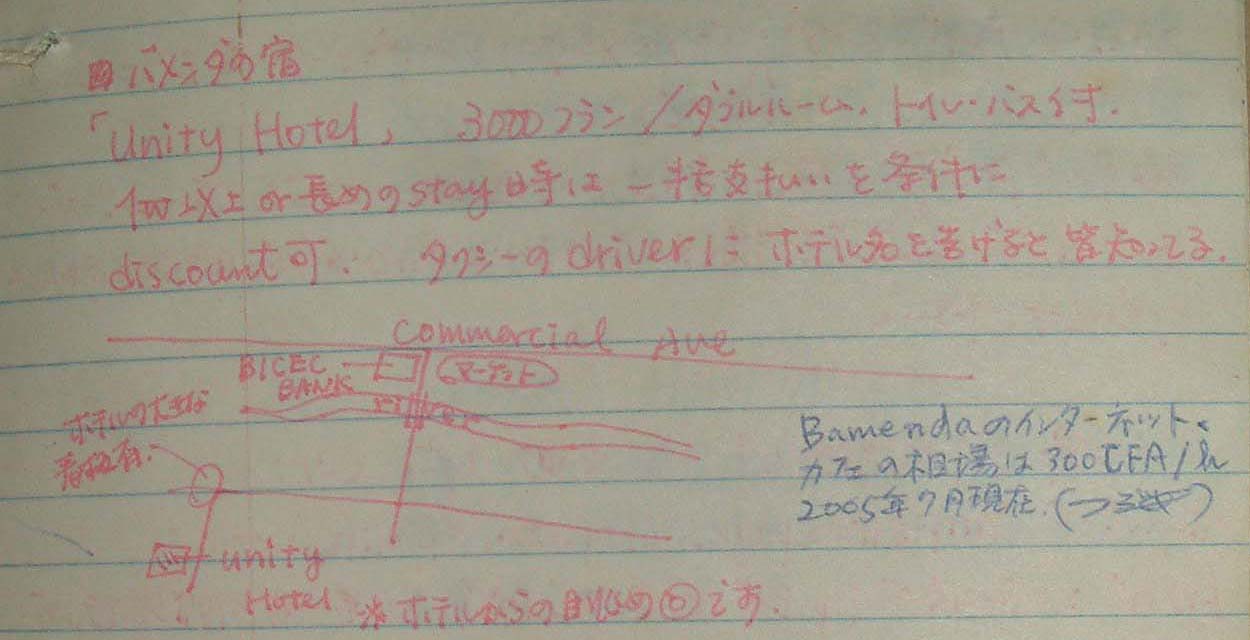 バメンダの宿
「Unity Hotel」 3000フラン/ダブルルーム、トイレ・バス付.
1w以上 or 長めのstay時は一括支払いを条件に
discount可. タクシーのdriverにホテル名を告げると皆知ってる.
Commercial Ave
BICEC BANK
マーケット
river
ホテルの大きな
看板有.
Bamendaのインターネット、
カフェの相場は300CFA/h
2005年7月現在.
unity
Hotel
※ホテルからの
です.